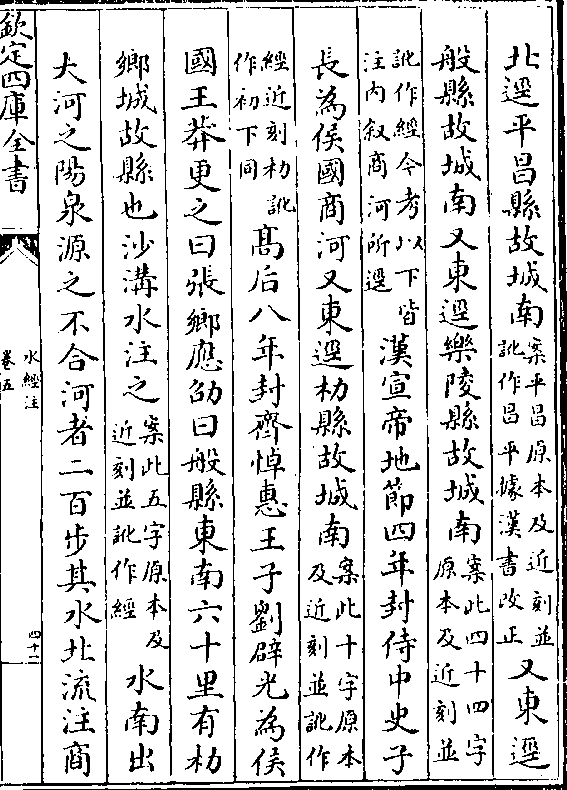 北逕平昌縣故城南案平昌原本及近刻並訛作昌平據漢書改正又東逕
般縣故城南又東逕樂陵縣故城南案此四十四字原本及近刻並
訛作經今考以下皆注内叙商河所逕漢宣帝地節四年封侍中史子
長為侯國商河又東逕朸縣故城南案此十字原本及近刻並訛作
經近刻朸訛作初下同高后八年封齊悼惠王子劉辟光為侯
國王莽更之曰張鄉應劭曰般縣東南六十里有朸
鄉城故縣也沙溝水注之案此五字原本及近刻並訛作經水南出
大河之陽泉源之不合河者二百步其水北流注商
欽定四庫全書
水經注
卷五
四十一